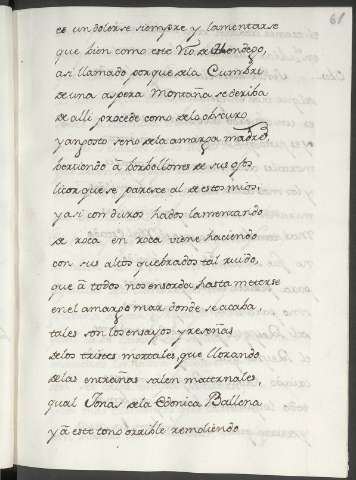 61
es un dolerse siempre y lamentarse
que bien como este Rio de Mondego,
asi llamado porque dela Cumbre
de una aspera Montaña se deriba
de alli procede como delo obscuro
y angosto seno dela amarga madre,
bertiendo à borbollones de sus ojos
licor que se parece al de estos mios,
y asi con duros hados lamentando
de roca en roca viene haciendo
con sus altos quebrados tal ruido,
que à todos nos ensorda, hasta meterse
en el amargo mar donde se acaba,
tales son los ensayos y reseñas
delos tristes mortales, que llorando
delas entrañas salen maternales,
qual Jonas dela Ballena
y à este tono orrible remoliendo